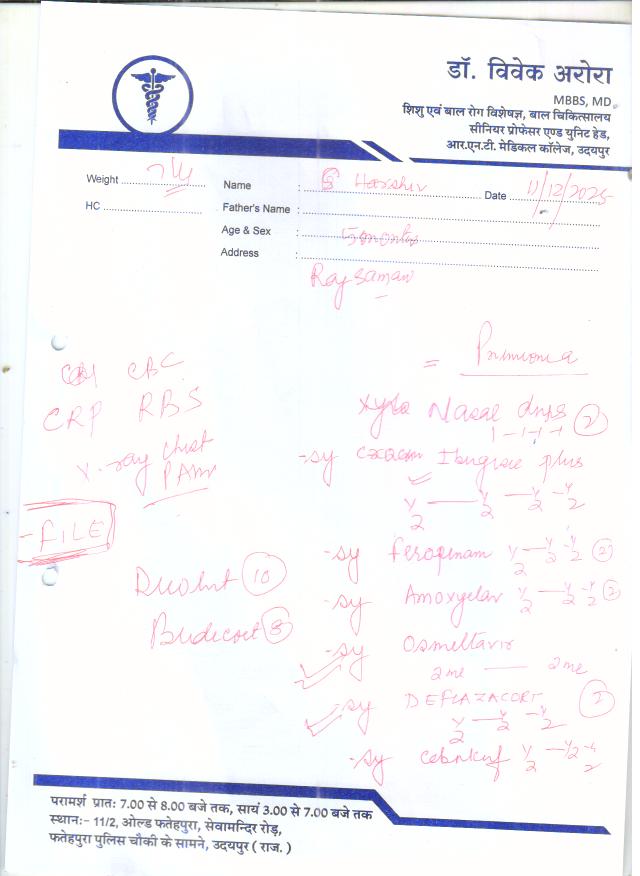 डॉ. विवेक अरोरा
MBBS, MD.
शिशु एवं बाल रोग विशेषज्ञ, बाल चिकित्सालय
सीनियर प्रोफेसर एण्ड युनिट हेड,
आर.एन.टी. मेडिकल कॉलेज, उदयपुर
Weight
Name : Harshiv Date 11/12/2025
HC
Father's Name :
Age & Sex : 5 months
Address :
Rajsaman
= Pnumonia
CBC
CRP RBS
X-ray chist
PAW
FILE
Xylo Nasal drops 2
1-1-1-1
-sy Ibugisic plus
1/2 — 1/2 — 1/2 - 1/2
-sy feropenam 1/2 — 1/2 - 1/2 2
Duolut 10
-sy Amoxyclav 1/2 — 1/2 - 1/2 2
Budecort 8
-sy Osmeltavir
2 me — 2 me
-sy DEFLAZACORT 2
1/2 — 1/2 - 1/2
-sy 1/2 - 1/2 - 1/2
परामर्श प्रातः 7.00 से 8.00 बजे तक, सायं 3.00 से 7.00 बजे तक
स्थान:- 11/2, ओल्ड फतेहपुरा, सेवामन्दिर रोड़,
फतेहपुरा पुलिस चौकी के सामने, उदयपुर ( राज. )